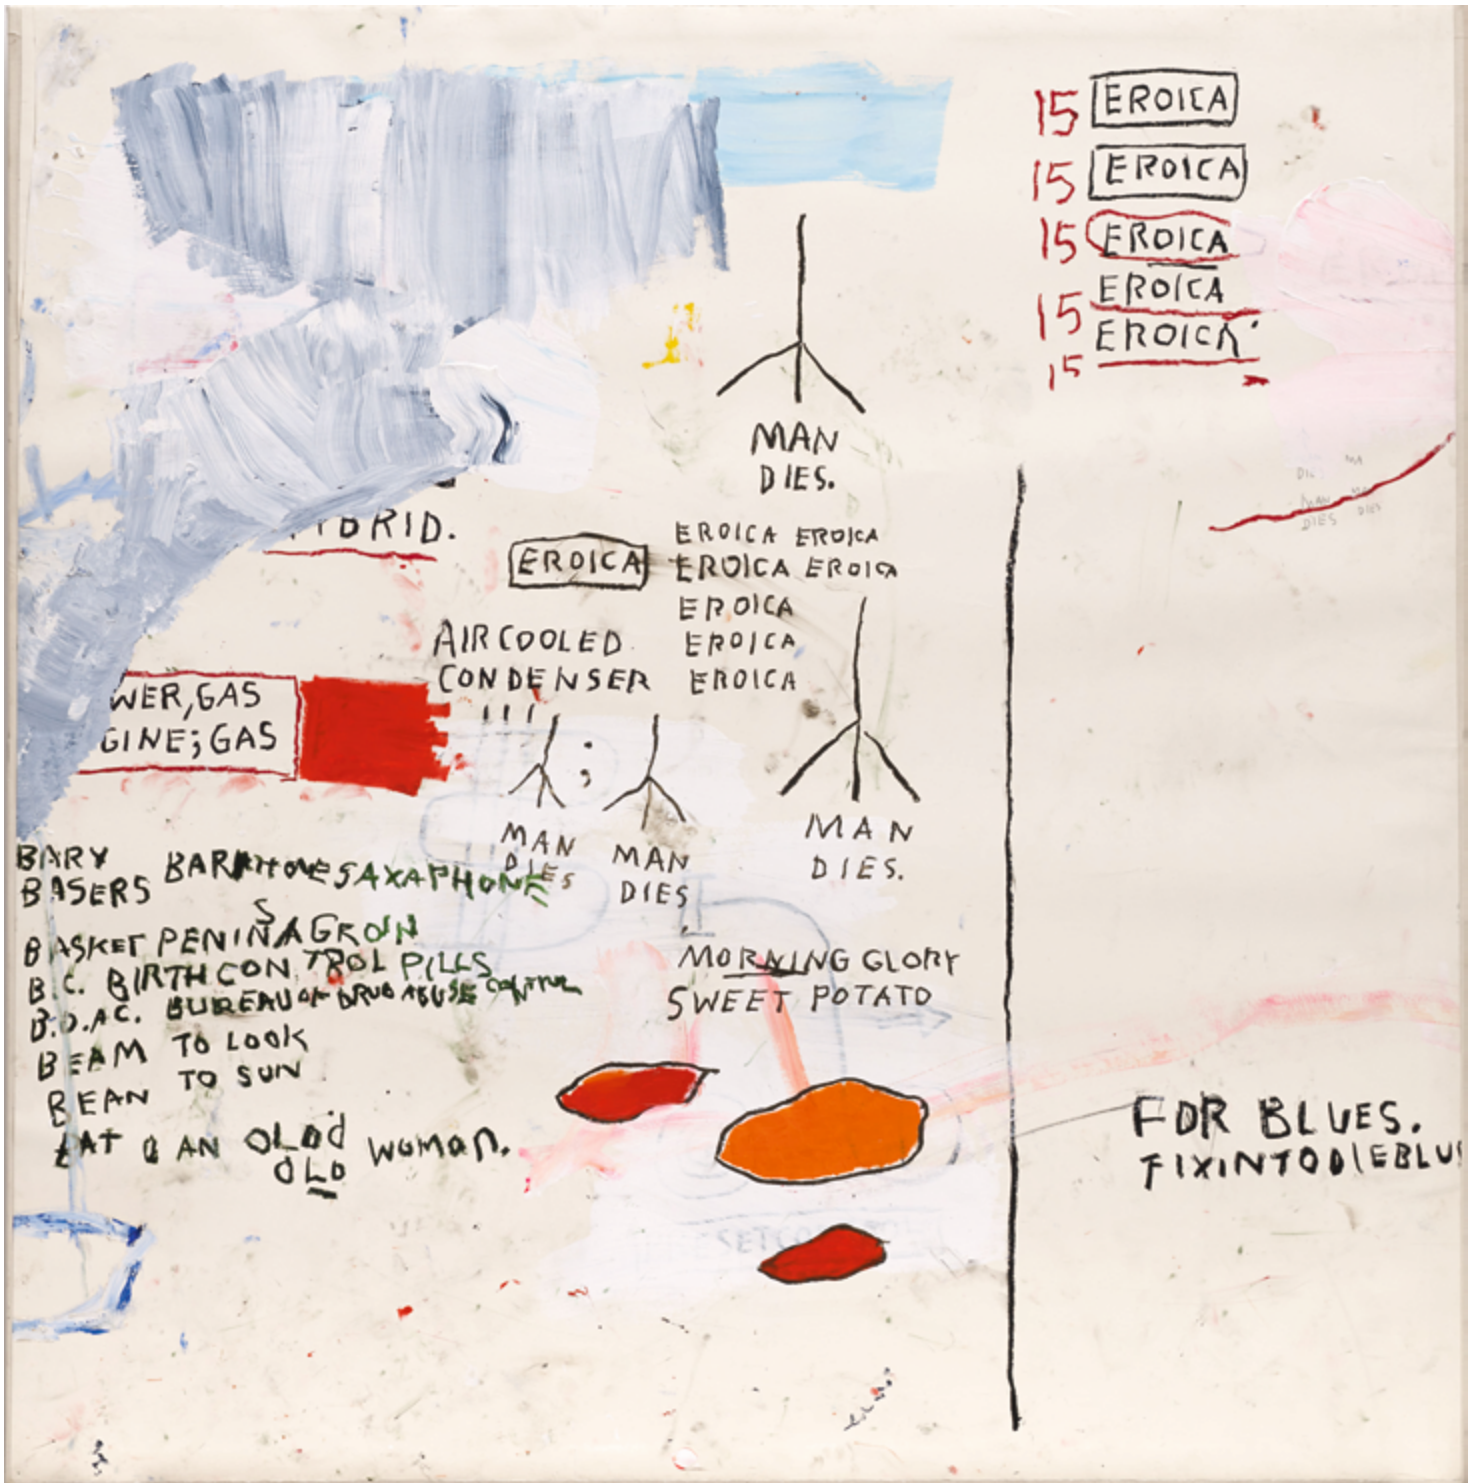 15 EROICA
15 EROICA
15 EROICA
15 EROICA
15 EROICA
MAN
DIES.
MAN
DIES
BRID.
EROICA
EROICA EROICA
EROICA EROICA
EROICA
EROICA
EROICA
AIR COOLED
CONDENSER
WER, GAS
GINE; GAS
;
MAN
DIES
MAN
DIES
MAN
DIES.
BARY
BASERS BARITONE SAXAPHONE
BASKET PENIN A GROIN
S
B.C. BIRTH CONTROL PILLS
B.D.A.C. BUREAU OF DRUG ABUSE CONTROL
BEAM TO LOOK
BEAN TO SUN
EAT Q AN OLD WOMAN.
OLD
MORNING GLORY
SWEET POTATO
FOR BLUES.
FIXINTODIEBLU